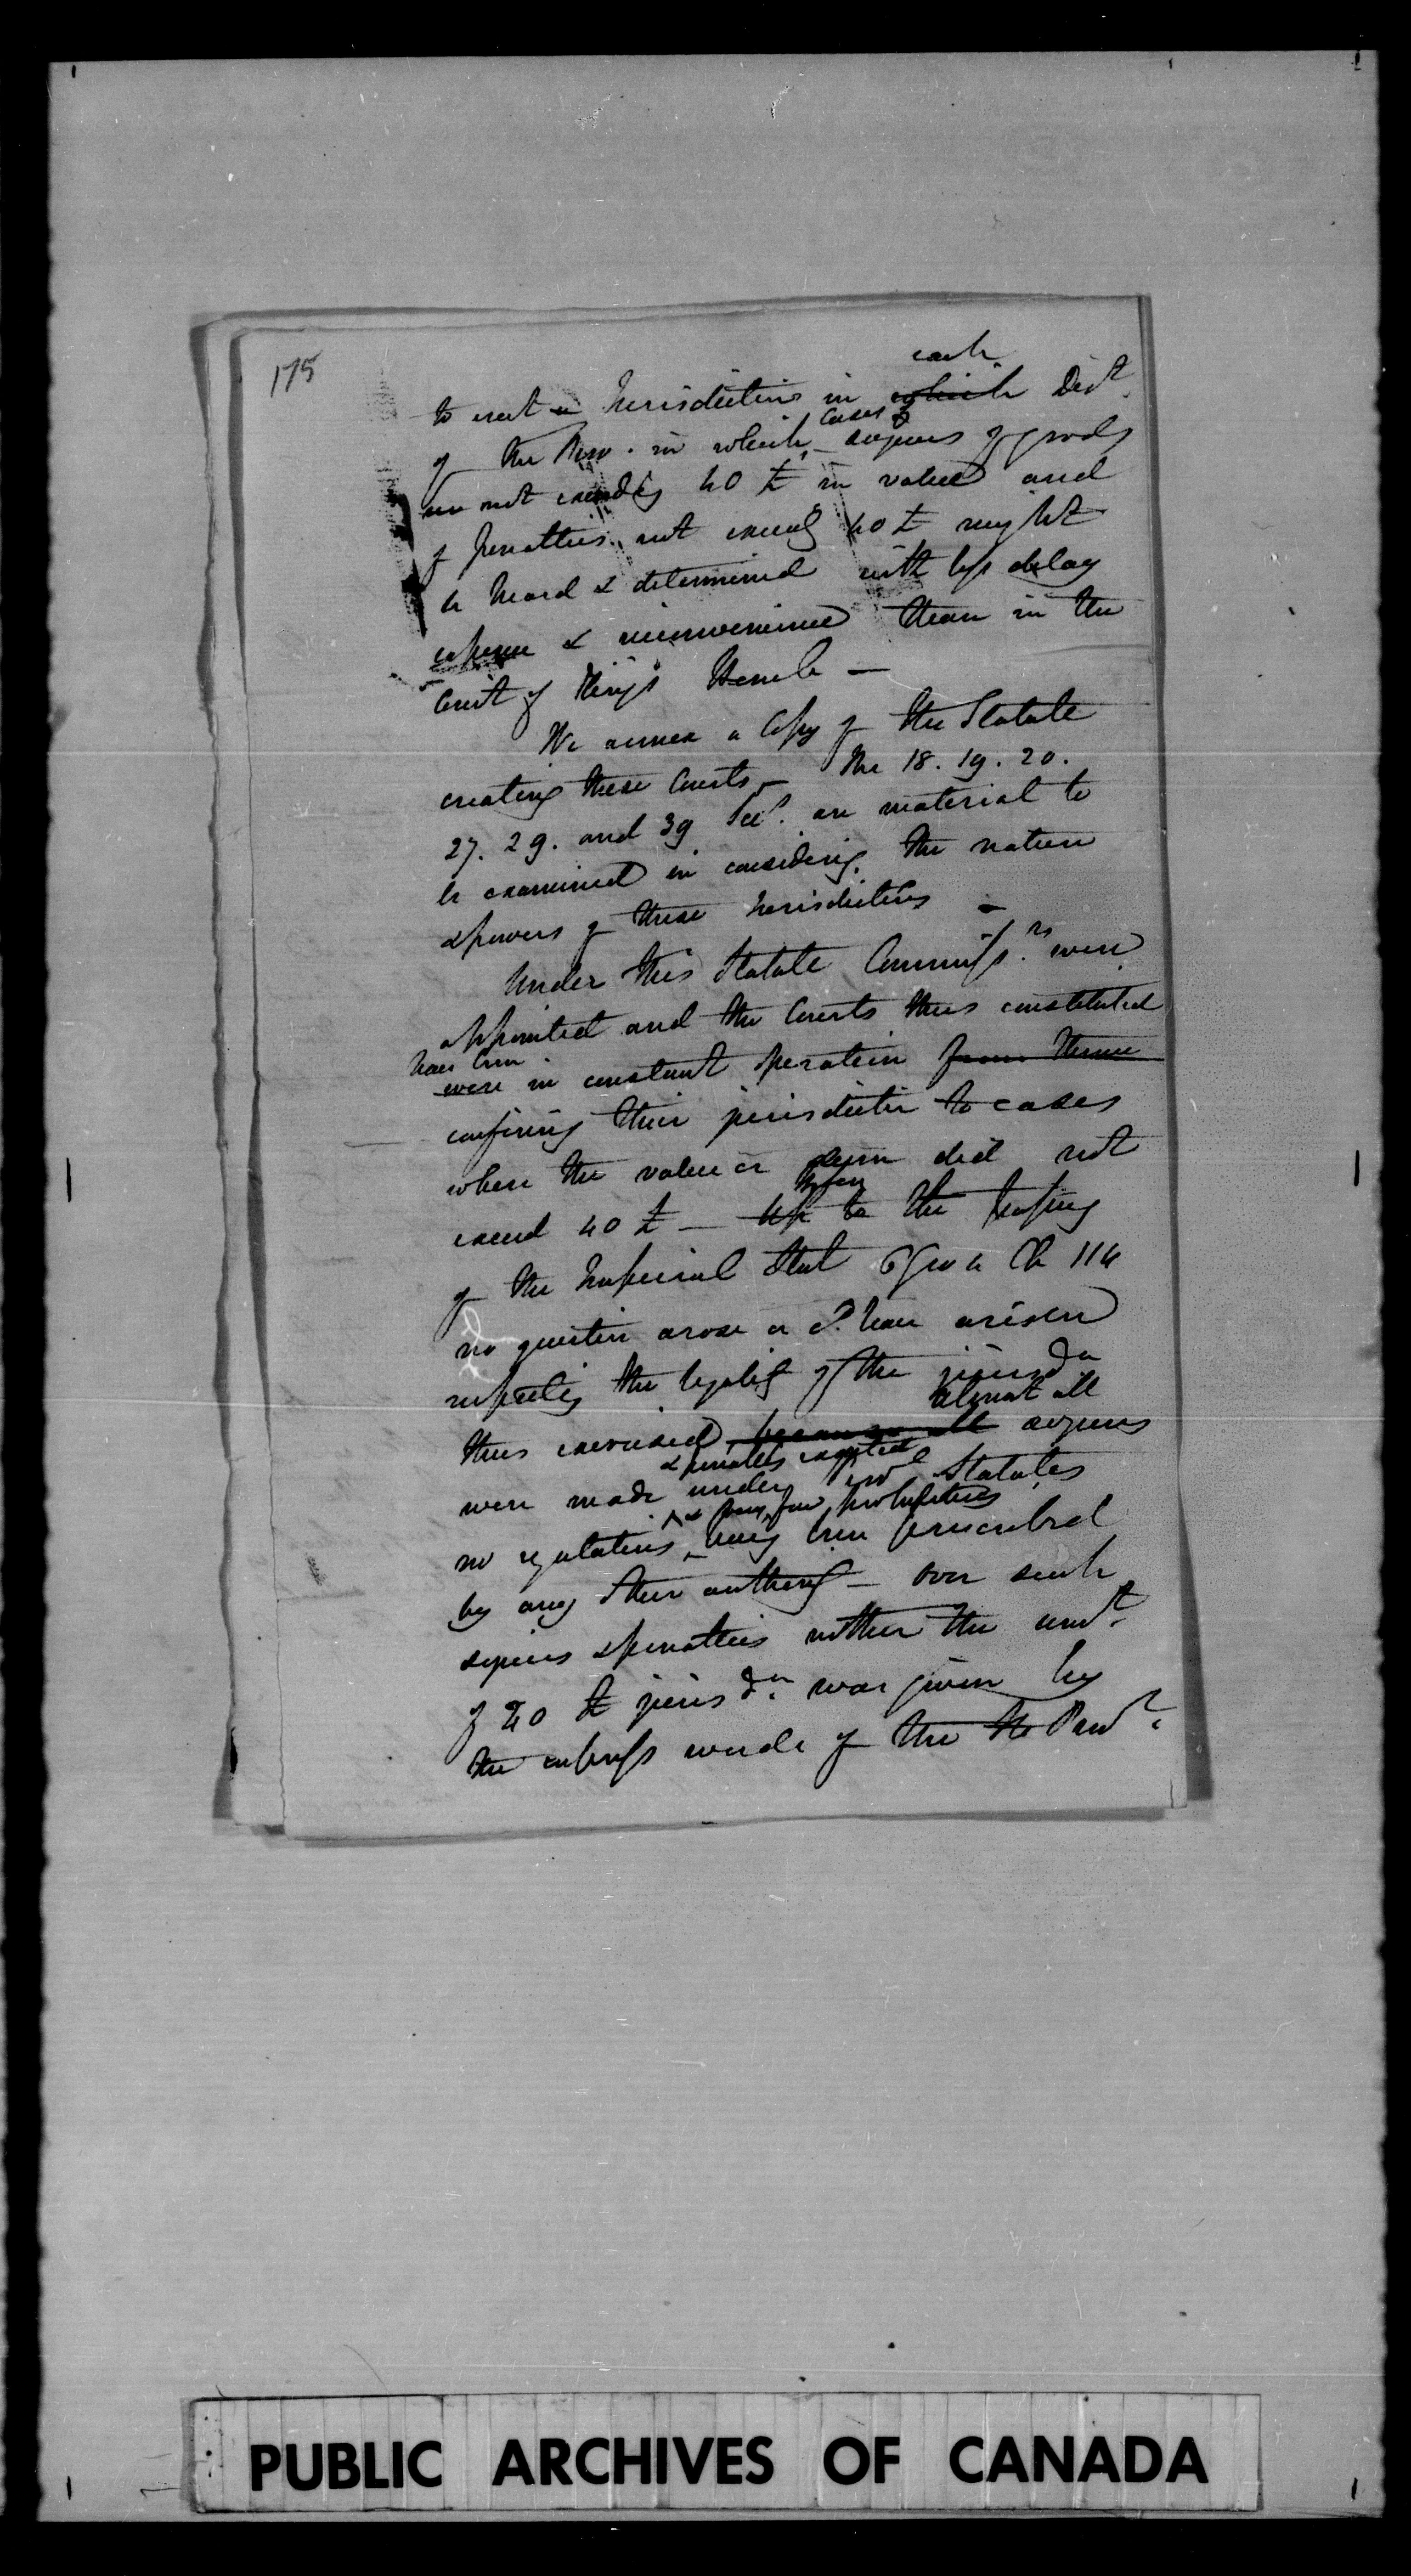 175
each
to erect a Jurisdiction in which Dist
of the Prov. in which cases of seizures of goods
not exceedg 40 £ in value and
of penalties not exceedg 40 £ might
be heard & determined with less delay
expense & inconvenience than in the
Court of King's Bench —
We annex a Copy of the Statute
creating these Courts — The 18. 19. 20.
27. 29. and 39 Secs. are material to
be examined in considering the nature
& powers of these Jurisdictions —
Under this Statute Commissrs were
appointed and the Courts thus constituted
have been
were in constant operation from thence
confining their jurisdiction to cases
where the value or sum did not
before
exceed 40 £ — Up to the passing
of the Imperial Stat 6 Geo 4 Ch 114
no question arose or cd. have arisen
respecting the legality of the jurisdn
almost all
thus exercised, because all seizures
& penalties
were made under Provl Statutes
& few prohibitions
no regulations having been prescribed
by any other authority — over such
seizures & penalties within the amt.
of 40 £ jurisdn. was given by
the express words of the the Provl.
PUBLIC ARCHIVES OF CANADA